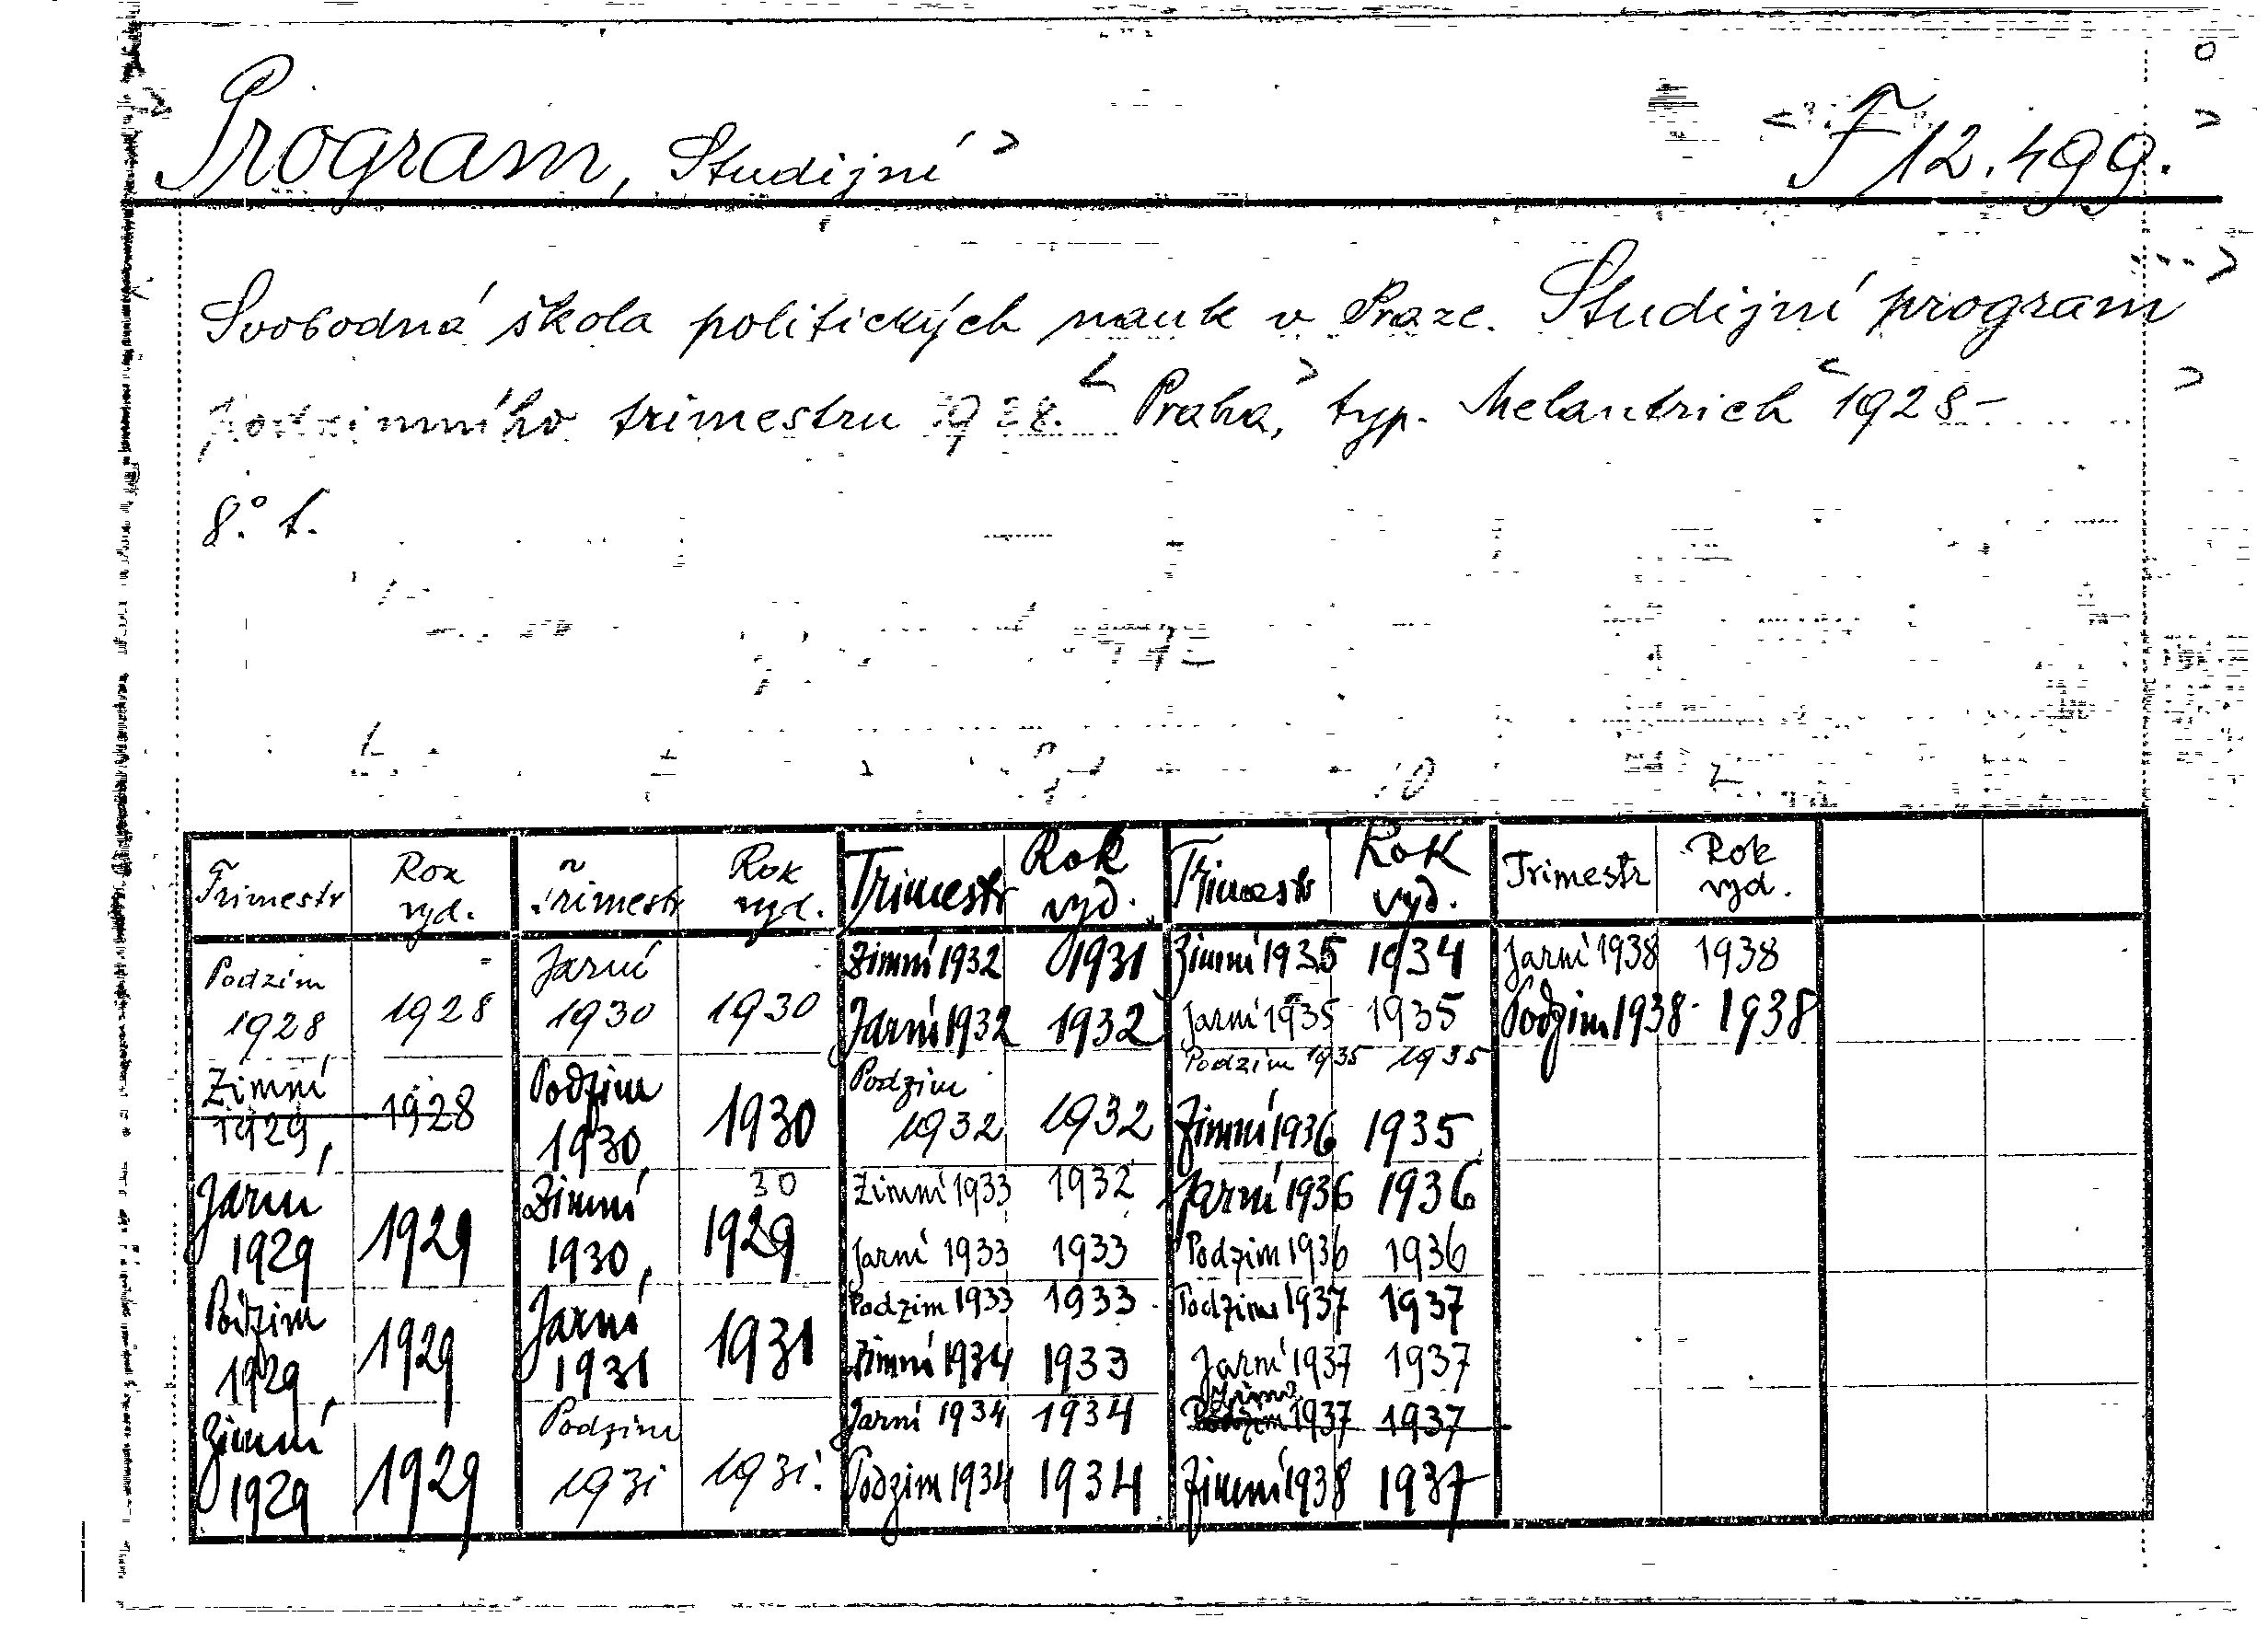 Program, Studijní F 12.499.
Svobodná škola politických nauk v Praze. Studijní program
podzimního trimestru 1928. Praha, typ. Melantrich 1928-
8.° t.
Trimestr Rok vyd. Trimestr Rok vyd. Trimestr Rok vyd. Trimestr Rok vyd. Trimestr Rok vyd.
Podzim 1928 1928
Zimní 1929, 1928
Jarní 1929 1929
Podzim 1929, 1929
Zimní 1929 1929
Jarní 1930 1930
Podzim 1930 1930
Zimní 1930, 1929 30
Jarní 1931 1931
Podzim 1931 1931.
Zimní 1932 1931
Jarní 1932 1932
Podzim 1932 1932
Zimní 1933 1932
Jarní 1933 1933
Podzim 1933 1933
Zimní 1934 1933
Jarní 1934 1934
Podzim 1934 1934
Zimní 1935 1934
Jarní 1935 1935
Podzim 1935 1935
Zimní 1936 1935
Jarní 1936 1936
Podzim 1936 1936
Podzim 1937 1937
Jarní 1937 1937
1937 1937
Zimní 1938 1937
Jarní 1938 1938
Podzim 1938 1938